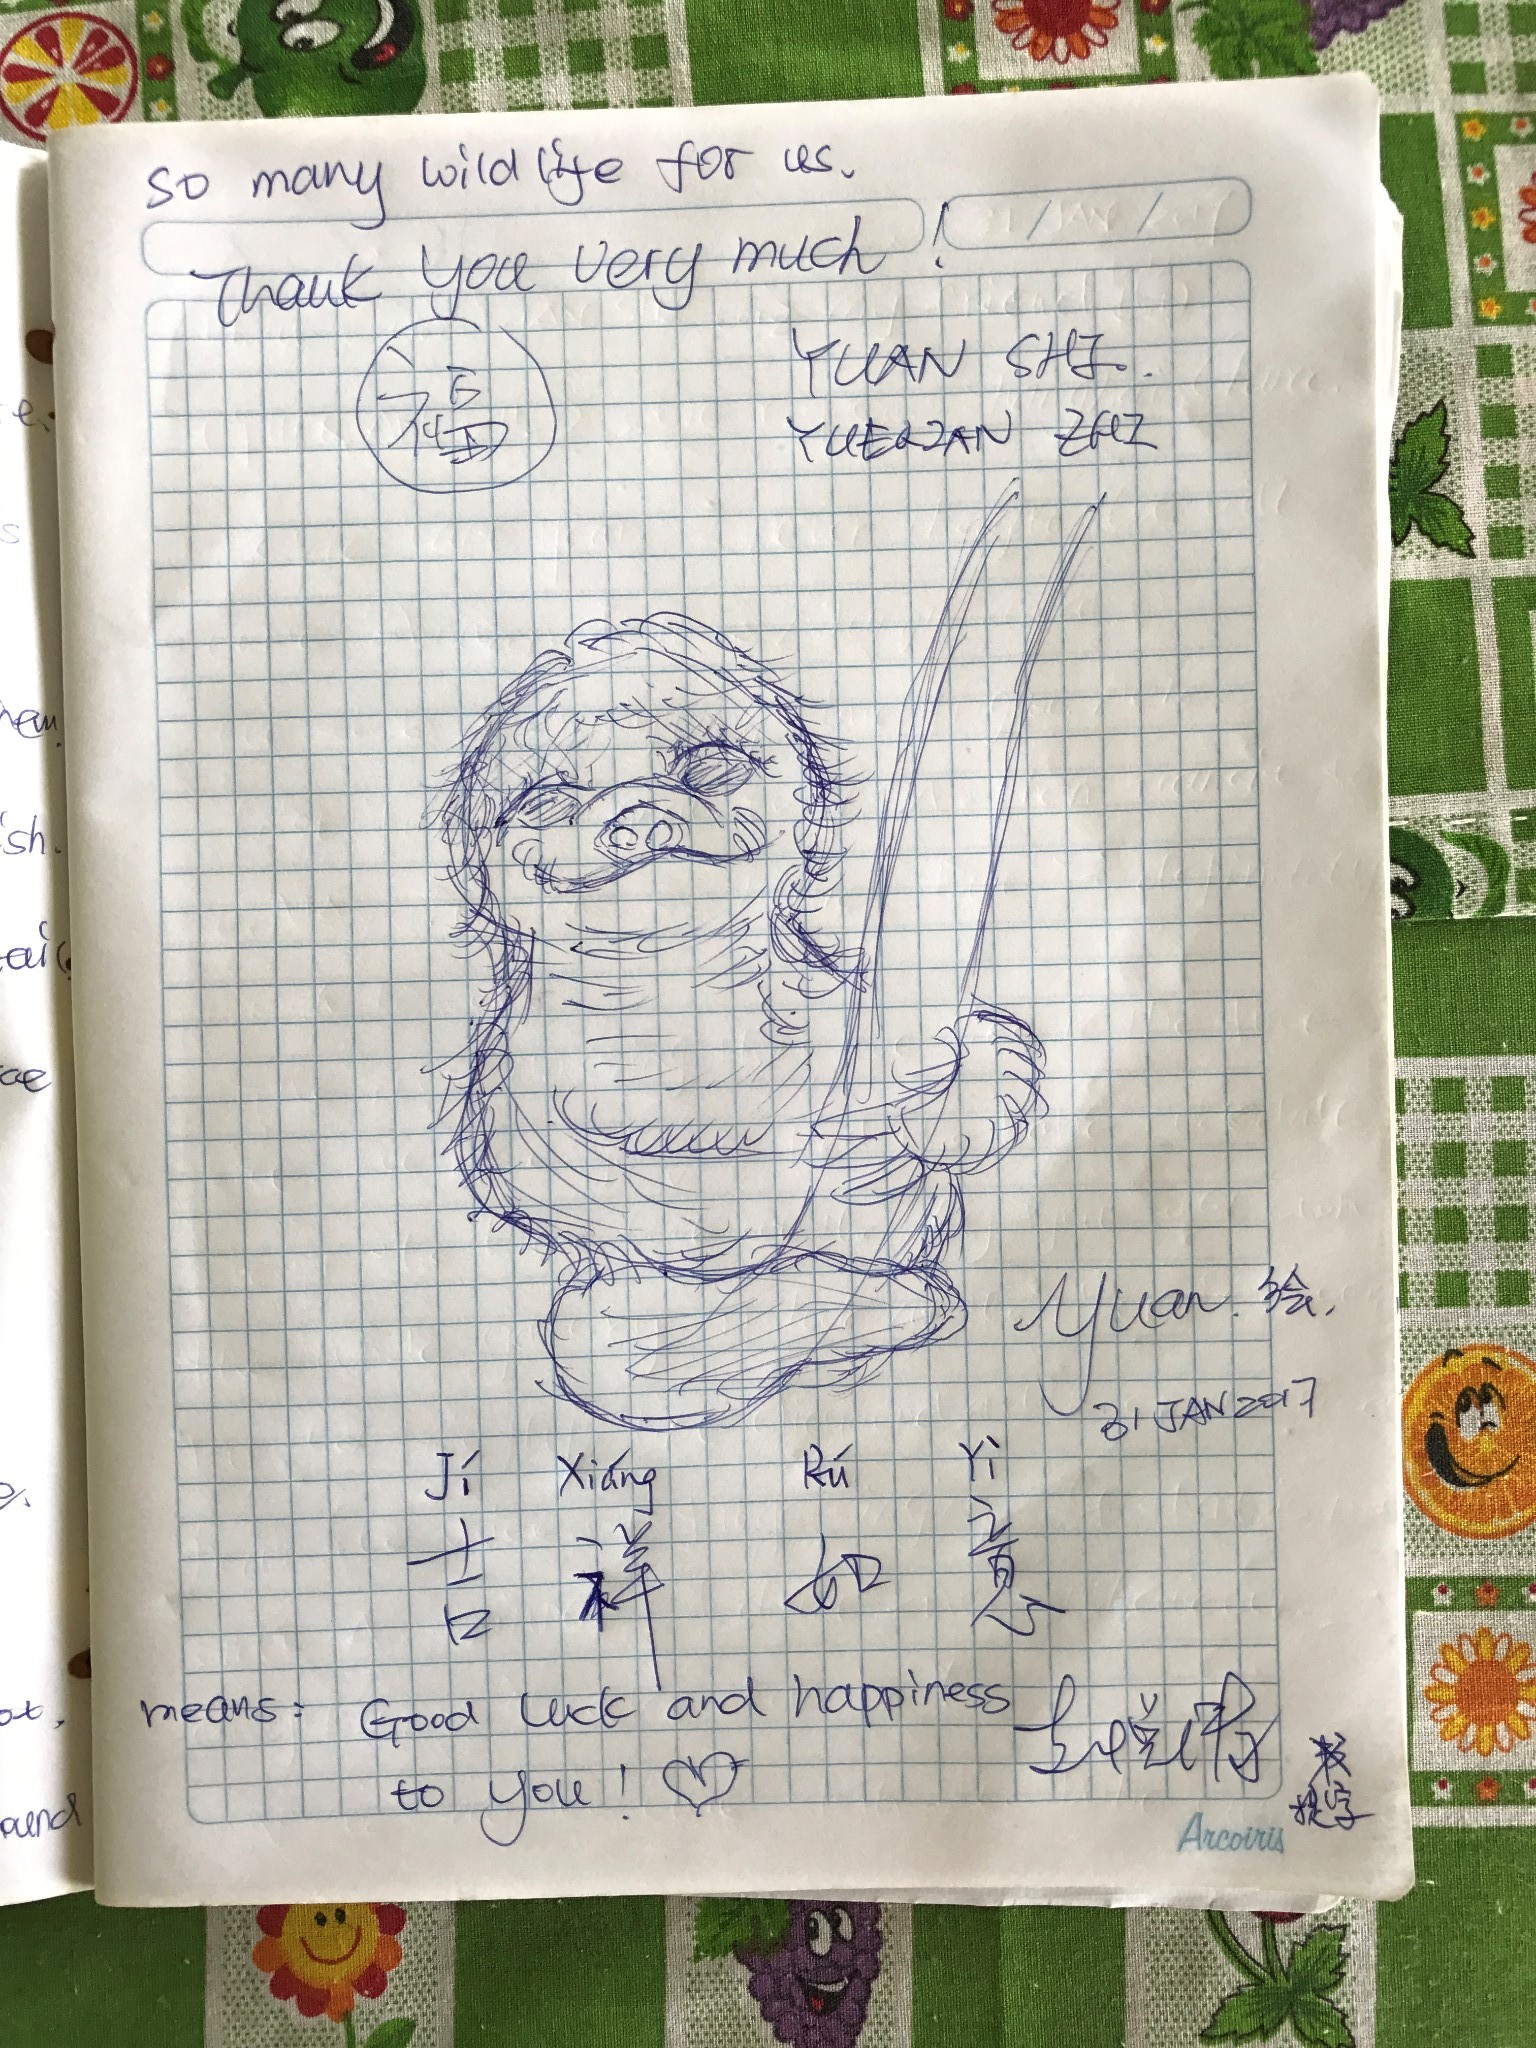 so many wildlife for us.
Thank you very much!
福
YUAN SHI.
YUEWAN ZHI
Yuan. 绘.
31 JAN 2017
Jí Xiáng Rú Yì
吉祥 如意
means: Good luck and happiness
to you!
题字
Arcoiris
em.
ish.
ound